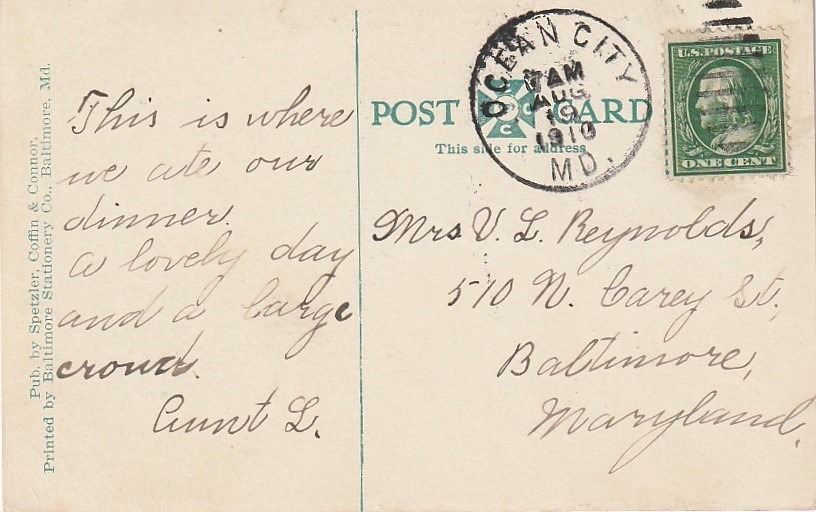 Pub. by Spetzler, Coffin & Connor.
Printed by Baltimore Stationery Co., Baltimore, Md.
This is where
we ate our
dinner.
A lovely day
and a large
crowd.
Aunt L.
POST CARD
This side for address
OCEAN CITY
7 AM
AUG
19
1910
MD.
U.S. POSTAGE
ONE CENT
Mrs V. L. Reynolds,
510 N. Carey St,
Baltimore,
Maryland.